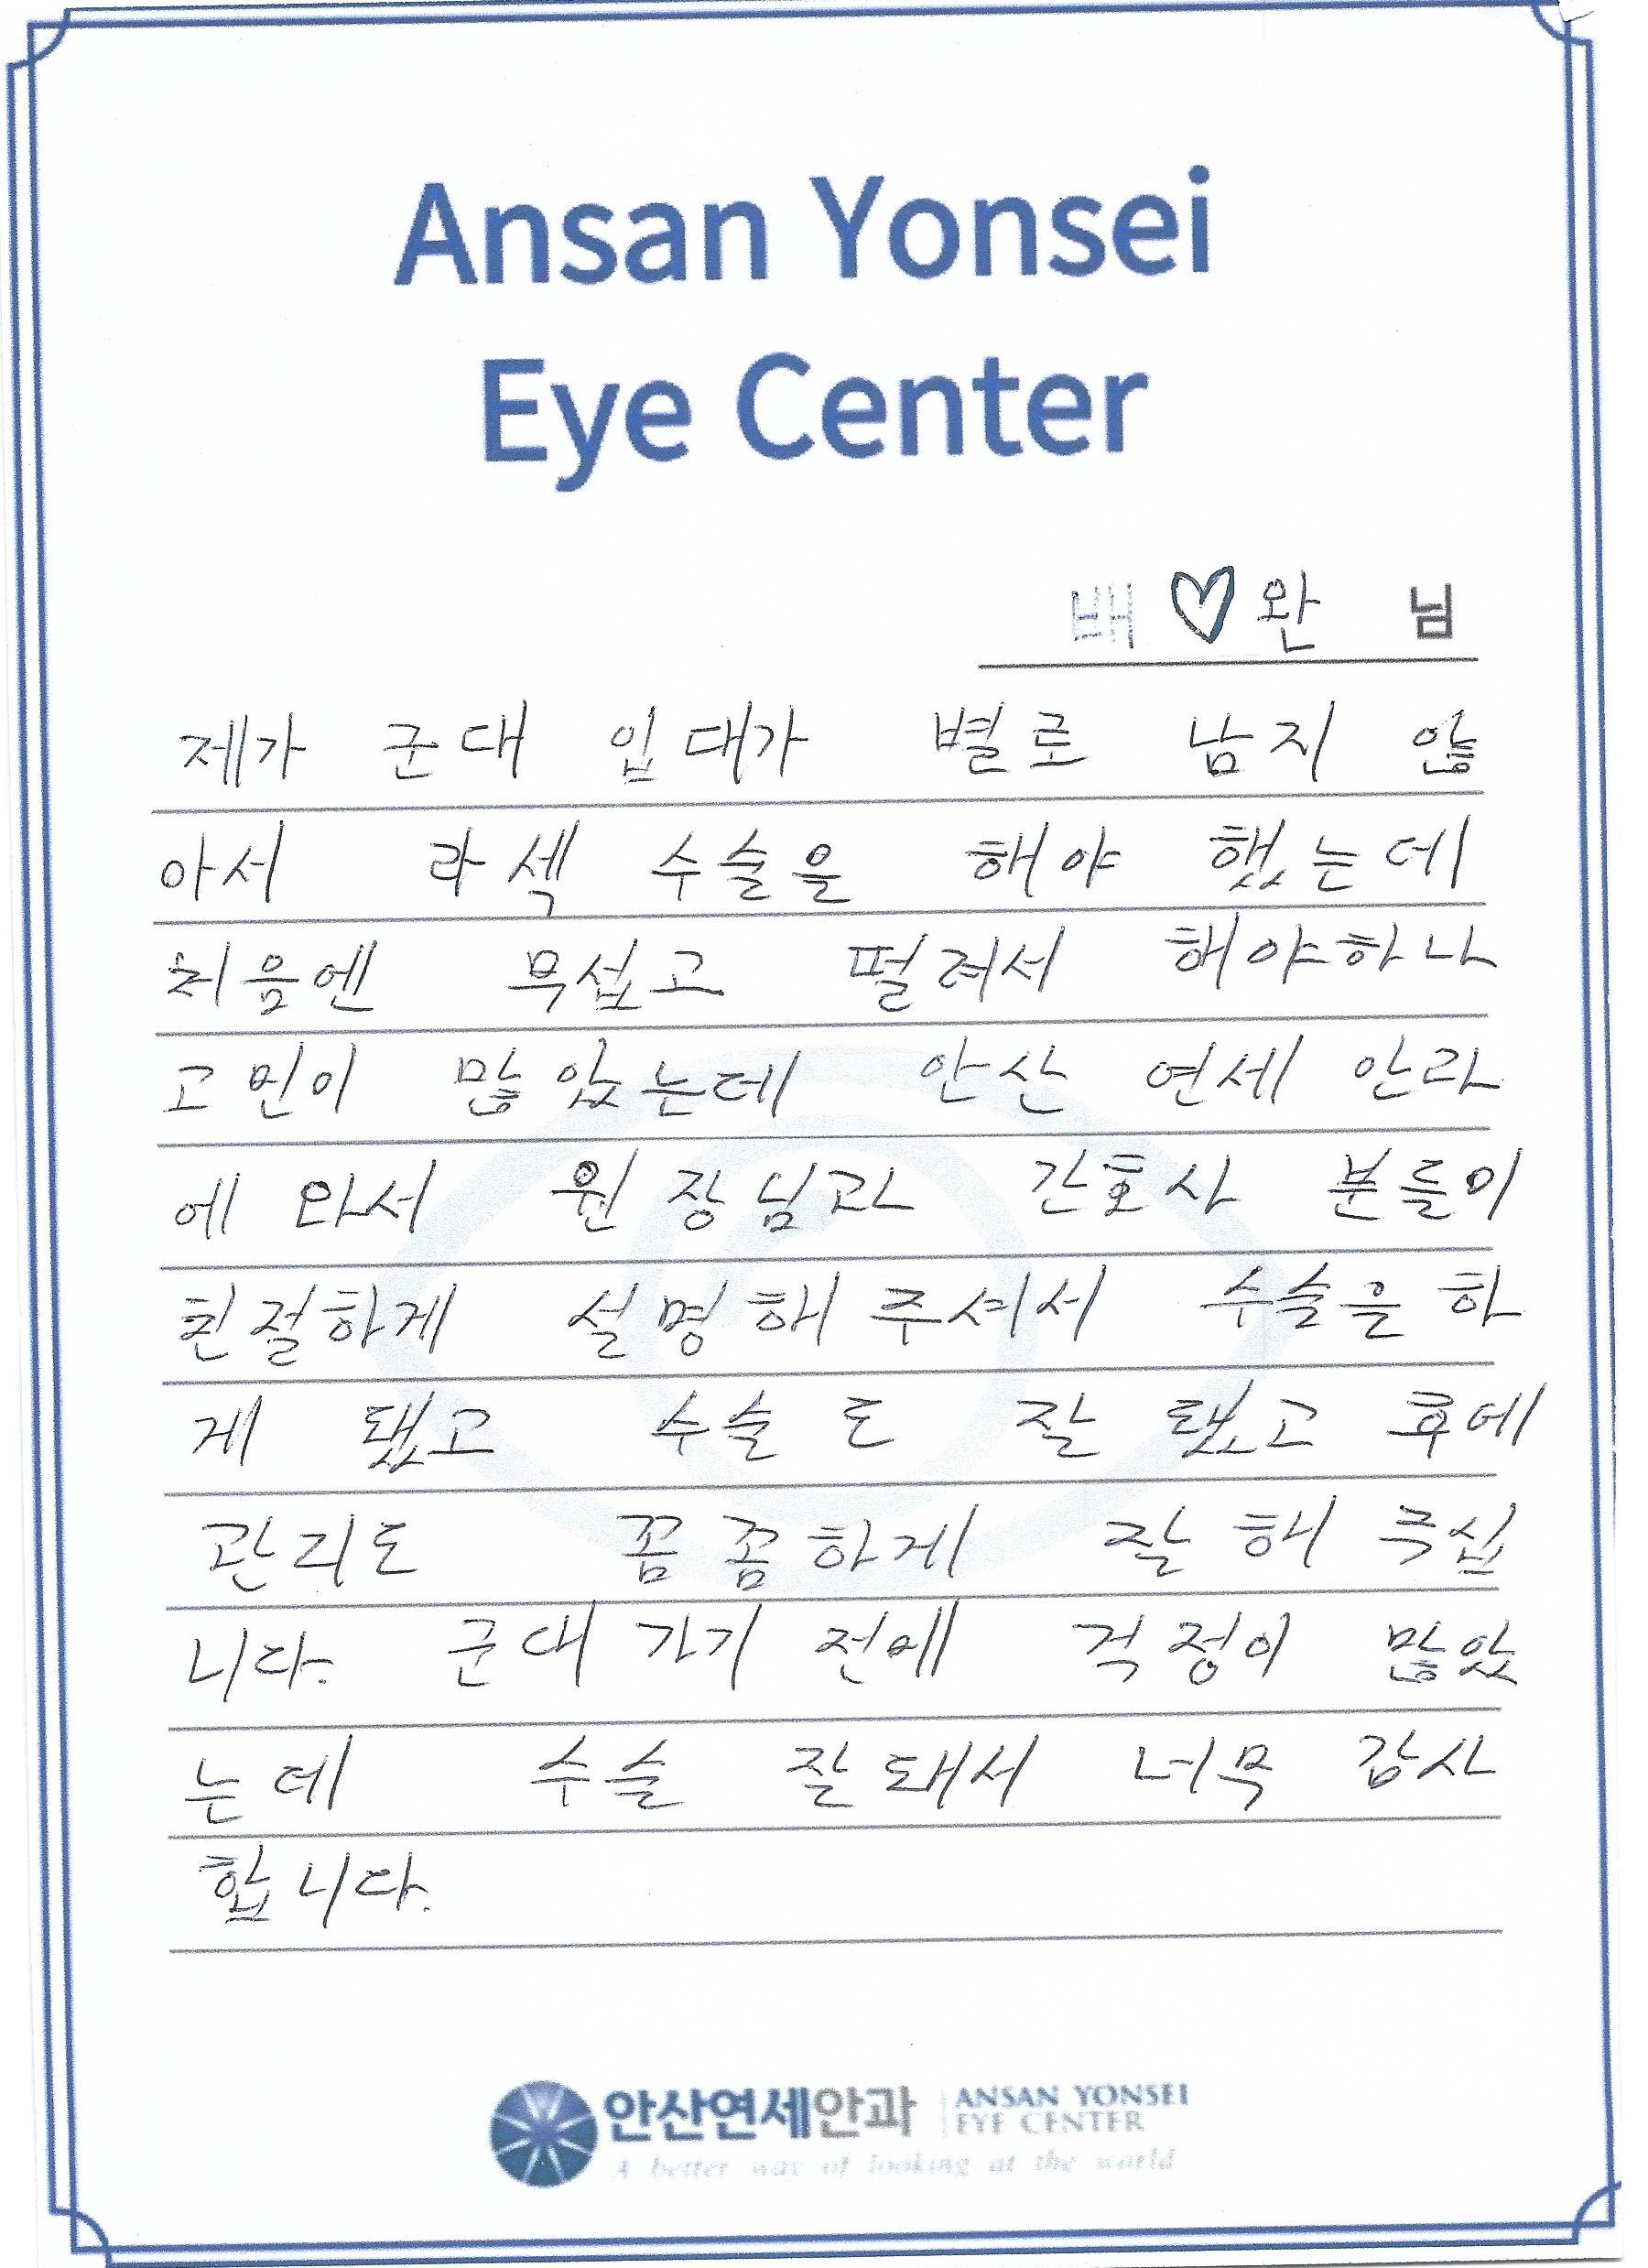 Ansan Yonsei
Eye Center
배 ♡ 완 님
제가 군대 입대가 별로 남지 않
아서 라섹 수술을 해야 했는데
처음엔 무섭고 떨려서 해야하나
고민이 많았는데 안산 연세 안과
에 와서 원장님과 간호사 분들이
친절하게 설명해 주셔서 수술을 하
게 됐고 수술도 잘 됐고 후에
관리도 꼼꼼하게 잘 해 주십
니다. 군대 가기 전에 걱정이 많았
는데 수술 잘 돼서 너무 감사
합니다.
안산연세안과 ANSAN YONSEI
EYE CENTER
A better way of looking at the world